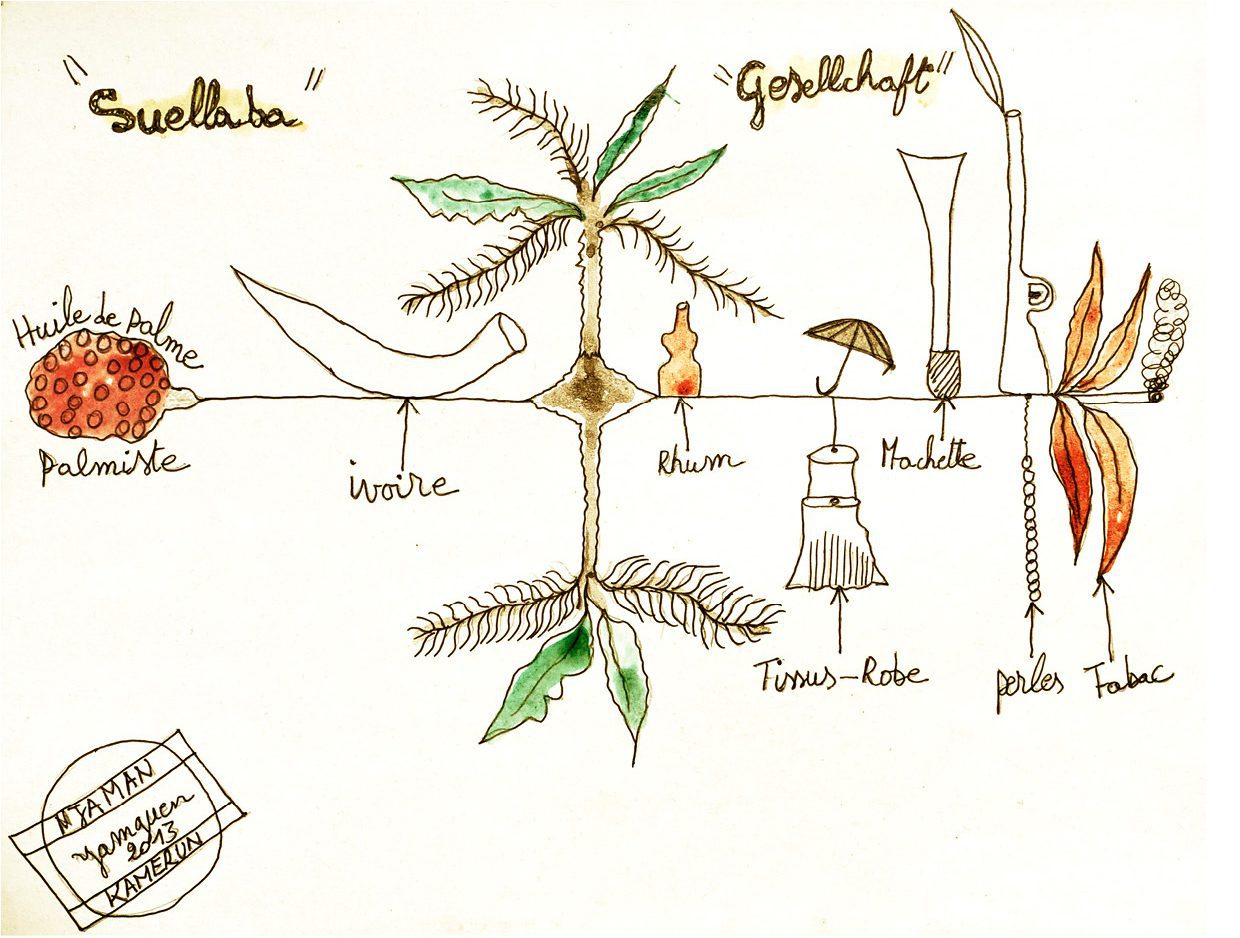 "Suellaba"
"Gesellchaft"
Huile de palme
palmiste
ivoire
Rhum
Machette
Tissus-Robe
perles
Tabac
NJAMAN
yamguen
2013
KAMERUN